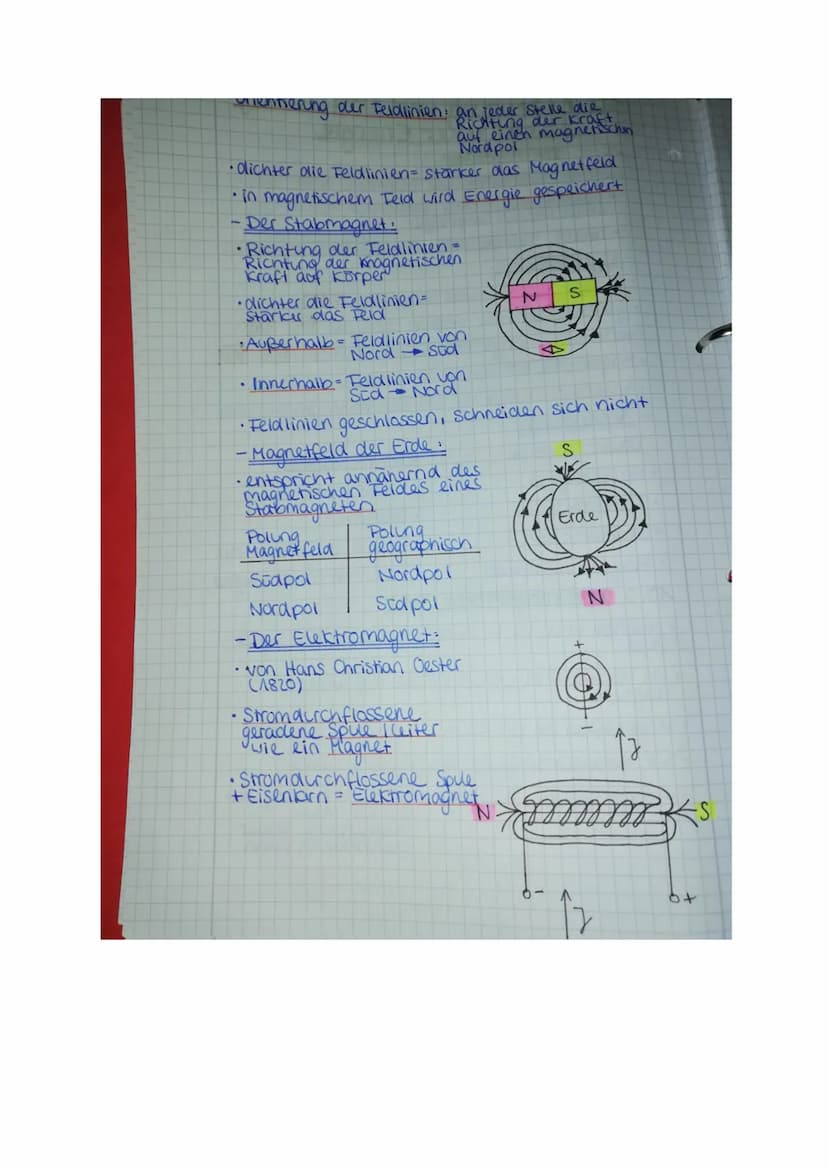 Orientierung der Feldlinien: an jeder Stelle die
Richtung der Kraft
auf einen magnetischen
Nordpol
· dichter die Feldlinien = stärker das Magnetfeld
· in magnetischem Feld wird Energie gespeichert
- Der Stabmagnet:
· Richtung der Feldlinien =
Richtung der magnetischen
Kraft auf Körper
· dichter die Feldlinien =
stärker das Feld
N S
· Außerhalb = Feldlinien von
Nord → Süd
· Innerhalb = Feldlinien von
Süd → Nord
· Feldlinien geschlossen, schneiden sich nicht
- Magnetfeld der Erde:
S
· entspricht annähernd des
magnetischen Feldes eines
Stabmagneten
Erde
Polung Polung
Magnetfeld geographisch
Südpol Nordpol
Nordpol Südpol
N
- Der Elektromagnet:
· von Hans Christian Oester
(1820)
+
-
· Stromdurchflossene
geradene Spule / Leiter
wie ein Magnet
· Stromdurchflossene Spule
+ Eisenkern = Elektromagnet
N S
- +